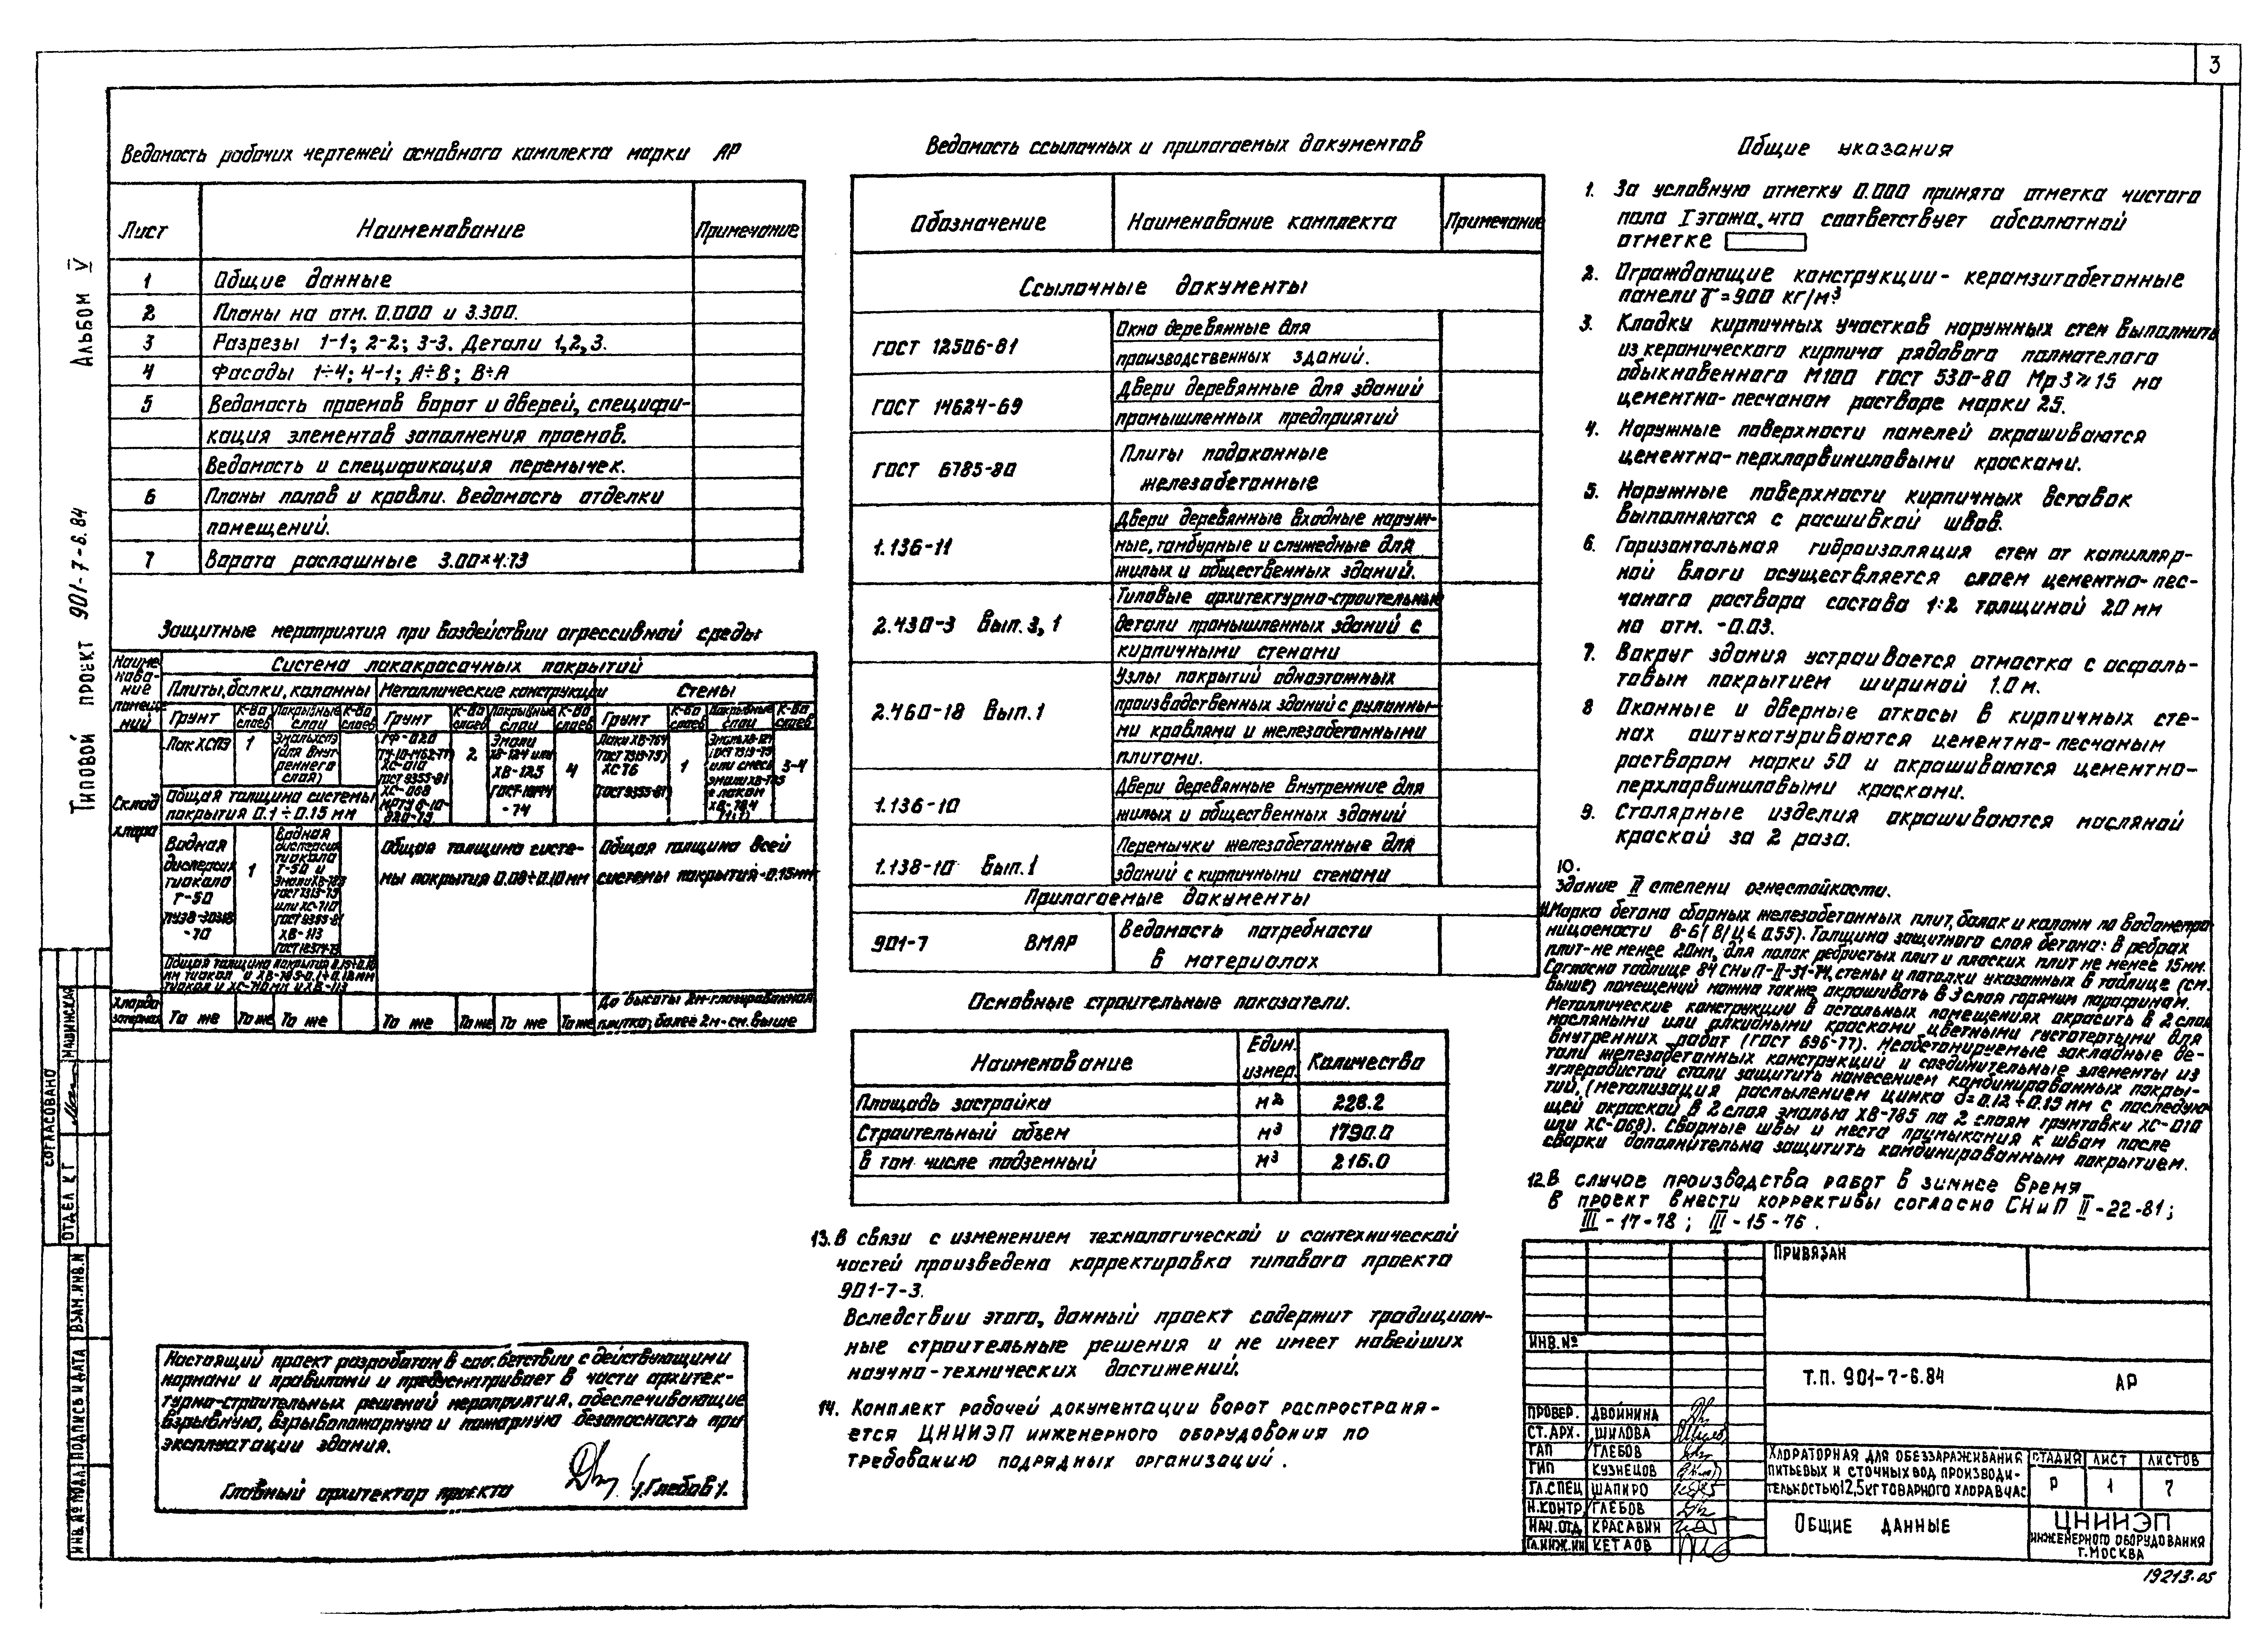 3
Альбом V
Типовой проект 901-7-6.84
Ведомость рабочих чертежей основного комплекта марки АР
Лист Наименование Примечание
1 Общие данные
2 Планы на отм. 0.000 и 3.300.
3 Разрезы 1-1; 2-2; 3-3. Детали 1,2,3.
4 Фасады 1÷4; 4-1; А÷В; В÷А
5 Ведомость проемов ворот и дверей, специфи-
кация элементов заполнения проемов.
Ведомость и спецификация перемычек.
6 Планы полов и кровли. Ведомость отделки
помещений.
7 Ворота распашные 3.00×4.73
Защитные мероприятия при воздействии агрессивной среды
Наиме-
нова-
ние
помеще-
ний
Система лакокрасочных покрытий
Плиты, балки, колонны Металлические конструкции Стены
Грунт К-во слоев Покрывные слои К-во слоев Грунт К-во слоев Покрывные слои К-во слоев Грунт К-во слоев Покрывные слои К-во слоев
Склад
хлора
Лак ХСПЭ 1 Эмаль ХСПЭ
(для внут-
реннего
слоя)
ГФ-020
ХС-010
ГОСТ 9355-81
ХС-068
2
Эмали
ХВ-124 или
ХВ-125
ГОСТ 10144
-74
4
Лаки ХВ-784
ГОСТ 7313-75)
ХС 76
ГОСТ 9355-81)
1
или смесь
эмали ХВ-785
с лаком
ХВ-784
3-4
Общая толщина системы
покрытия 0.1÷0.15 мм
Водная
дисперсия
тиокола
Т-50
-70
1
Водная
дисперсия
тиокола
Т-50 и
Эмали ХВ-785
ГОСТ 7313-75
или ХС-710
ГОСТ 9355-81
ХВ-113
Общая толщина систе-
мы покрытия 0.08÷0.10 мм
Общая толщина всей
системы покрытия-0.15мм
Общая толщина покрытия
Хлордо-
заторная
То же То же То же То же То же То же То же
До высоты 2м-глазированная
плитка, более 2м-см. выше
Настоящий проект разработан в соответствии с действующими
нормами и правилами и предусматривает в части архитек-
турно-строительных решений мероприятия, обеспечивающие
взрывную, взрывопожарную и пожарную безопасность при
эксплуатации здания.
Главный архитектор проекта /Глебов/.
Ведомость ссылочных и прилагаемых документов
Обозначение Наименование комплекта Примечание
Ссылочные документы
ГОСТ 12506-81 Окна деревянные для
производственных зданий.
ГОСТ 14624-69 Двери деревянные для зданий
промышленных предприятий
ГОСТ 6785-80 Плиты подоконные
железобетонные
1.136-11 Двери деревянные входные наруж-
ные, тамбурные и служебные для
жилых и общественных зданий.
2.430-3 Вып. 3, 1 Типовые архитектурно-строительные
детали промышленных зданий с
кирпичными стенами
2.460-18 Вып. 1 Узлы покрытий одноэтажных
производственных зданий с рулонны-
ми кровлями и железобетонными
плитами.
1.136-10 Двери деревянные внутренние для
жилых и общественных зданий
1.138-10 Вып. 1 Перемычки железобетонные для
зданий с кирпичными стенами
Прилагаемые документы
901-7 ВМАР Ведомость потребности
в материалах
Основные строительные показатели.
Наименование Един. измер. Количество
Площадь застройки м2 228.2
Строительный объем м3 1790.0
в том числе подземный м3 216.0
13. В связи с изменением технологической и сантехнической
частей произведена корректировка типового проекта
901-7-3.
Вследствии этого, данный проект содержит традицион-
ные строительные решения и не имеет новейших
научно-технических достижений.
14. Комплект рабочей документации ворот распространя-
ется ЦНИИЭП инженерного оборудования по
требованию подрядных организаций.
Общие указания
1. За условную отметку 0.000 принята отметка чистого
пола I этажа, что соответствует абсолютной
отметке
2. Ограждающие конструкции - керамзитобетонные
панели γ=900 кг/м3
3. Кладку кирпичных участков наружных стен выполнить
из керамического кирпича рядового полнотелого
обыкновенного М100 ГОСТ 530-80 Мрз≥15 на
цементно-песчаном растворе марки 25.
4. Наружные поверхности панелей окрашиваются
цементно-перхлорвиниловыми красками.
5. Наружные поверхности кирпичных вставок
выполняются с расшивкой швов.
6. Горизонтальная гидроизоляция стен от капилляр-
ной влаги осуществляется слоем цементно-пес-
чаного раствора состава 1:2 толщиной 20 мм
на отм. -0.03.
7. Вокруг здания устраивается отмостка с асфаль-
товым покрытием шириной 1.0 м.
8 Оконные и дверные откосы в кирпичных сте-
нах оштукатуриваются цементно-песчаным
раствором марки 50 и окрашиваются цементно-
перхлорвиниловыми красками.
9. Столярные изделия окрашиваются масляной
краской за 2 раза.
10.
Здание II степени огнестойкости.
11. Марка бетона сборных железобетонных плит, балок и колонн по водонепро-
ницаемости В-6 (В/Ц ≤ 0.55). Толщина защитного слоя бетона: в ребрах
плит-не менее 20мм, для полок ребристых плит и плоских плит не менее 15мм.
Согласно таблице 84 СНиП-II-31-74, стены и потолки указанных в таблице (см.
выше) помещений можно также окрашивать в 3 слоя горячим парафином.
Металлические конструкции в остальных помещениях окрасить в 2 слоя
масляными или алкидными красками цветными густотертыми для
внутренних работ (ГОСТ 696-77). Необетонируемые закладные де-
тали железобетонных конструкций и соединительные элементы из
углеродистой стали защитить нанесением комбинированных покры-
тий, (метализация распылением цинка d=0.12÷0.15 мм с последую-
щей окраской в 2 слоя эмалью ХВ-785 по 2 слоям грунтовки ХС-010
или ХС-068). Сварные швы и места примыкания к швам после
сварки дополнительно защитить комбинированным покрытием.
12. В случае производства работ в зимнее время
в проект внести коррективы согласно СНиП II-22-81;
III-17-78; III-15-76.
Привязан
Инв. №
Т.П. 901-7-6.84 АР
Провер. Двойнина
Ст. арх. Шилова
ГАП Глебов
ГИП Кузнецов
Гл. спец Шапиро
Н. контр Глебов
Нач. отд. Красавин
Гл. инж. ин Кетаов
Хлораторная для обеззараживания
питьевых и сточных вод производи-
тельностью 12,5 кг товарного хлора в час
Стадия Лист Листов
Р 1 7
Общие данные
ЦНИИЭП
инженерного оборудования
г. Москва
19213-05
Согласовано
Отдел КГ Машинская
Инв. № подл. Подпись и дата Взам. инв. №